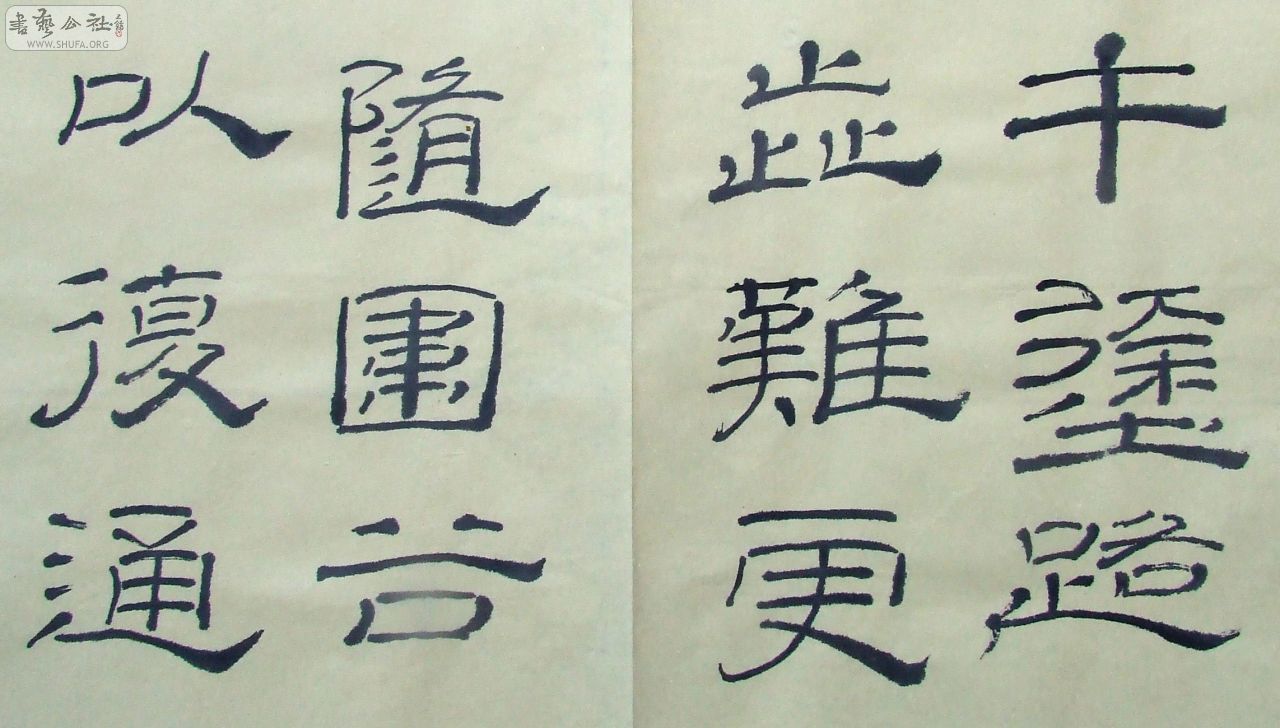 書藝公社
WWW.SHUFA.ORG
午塗路
歮難更
隨圍谷
以復通